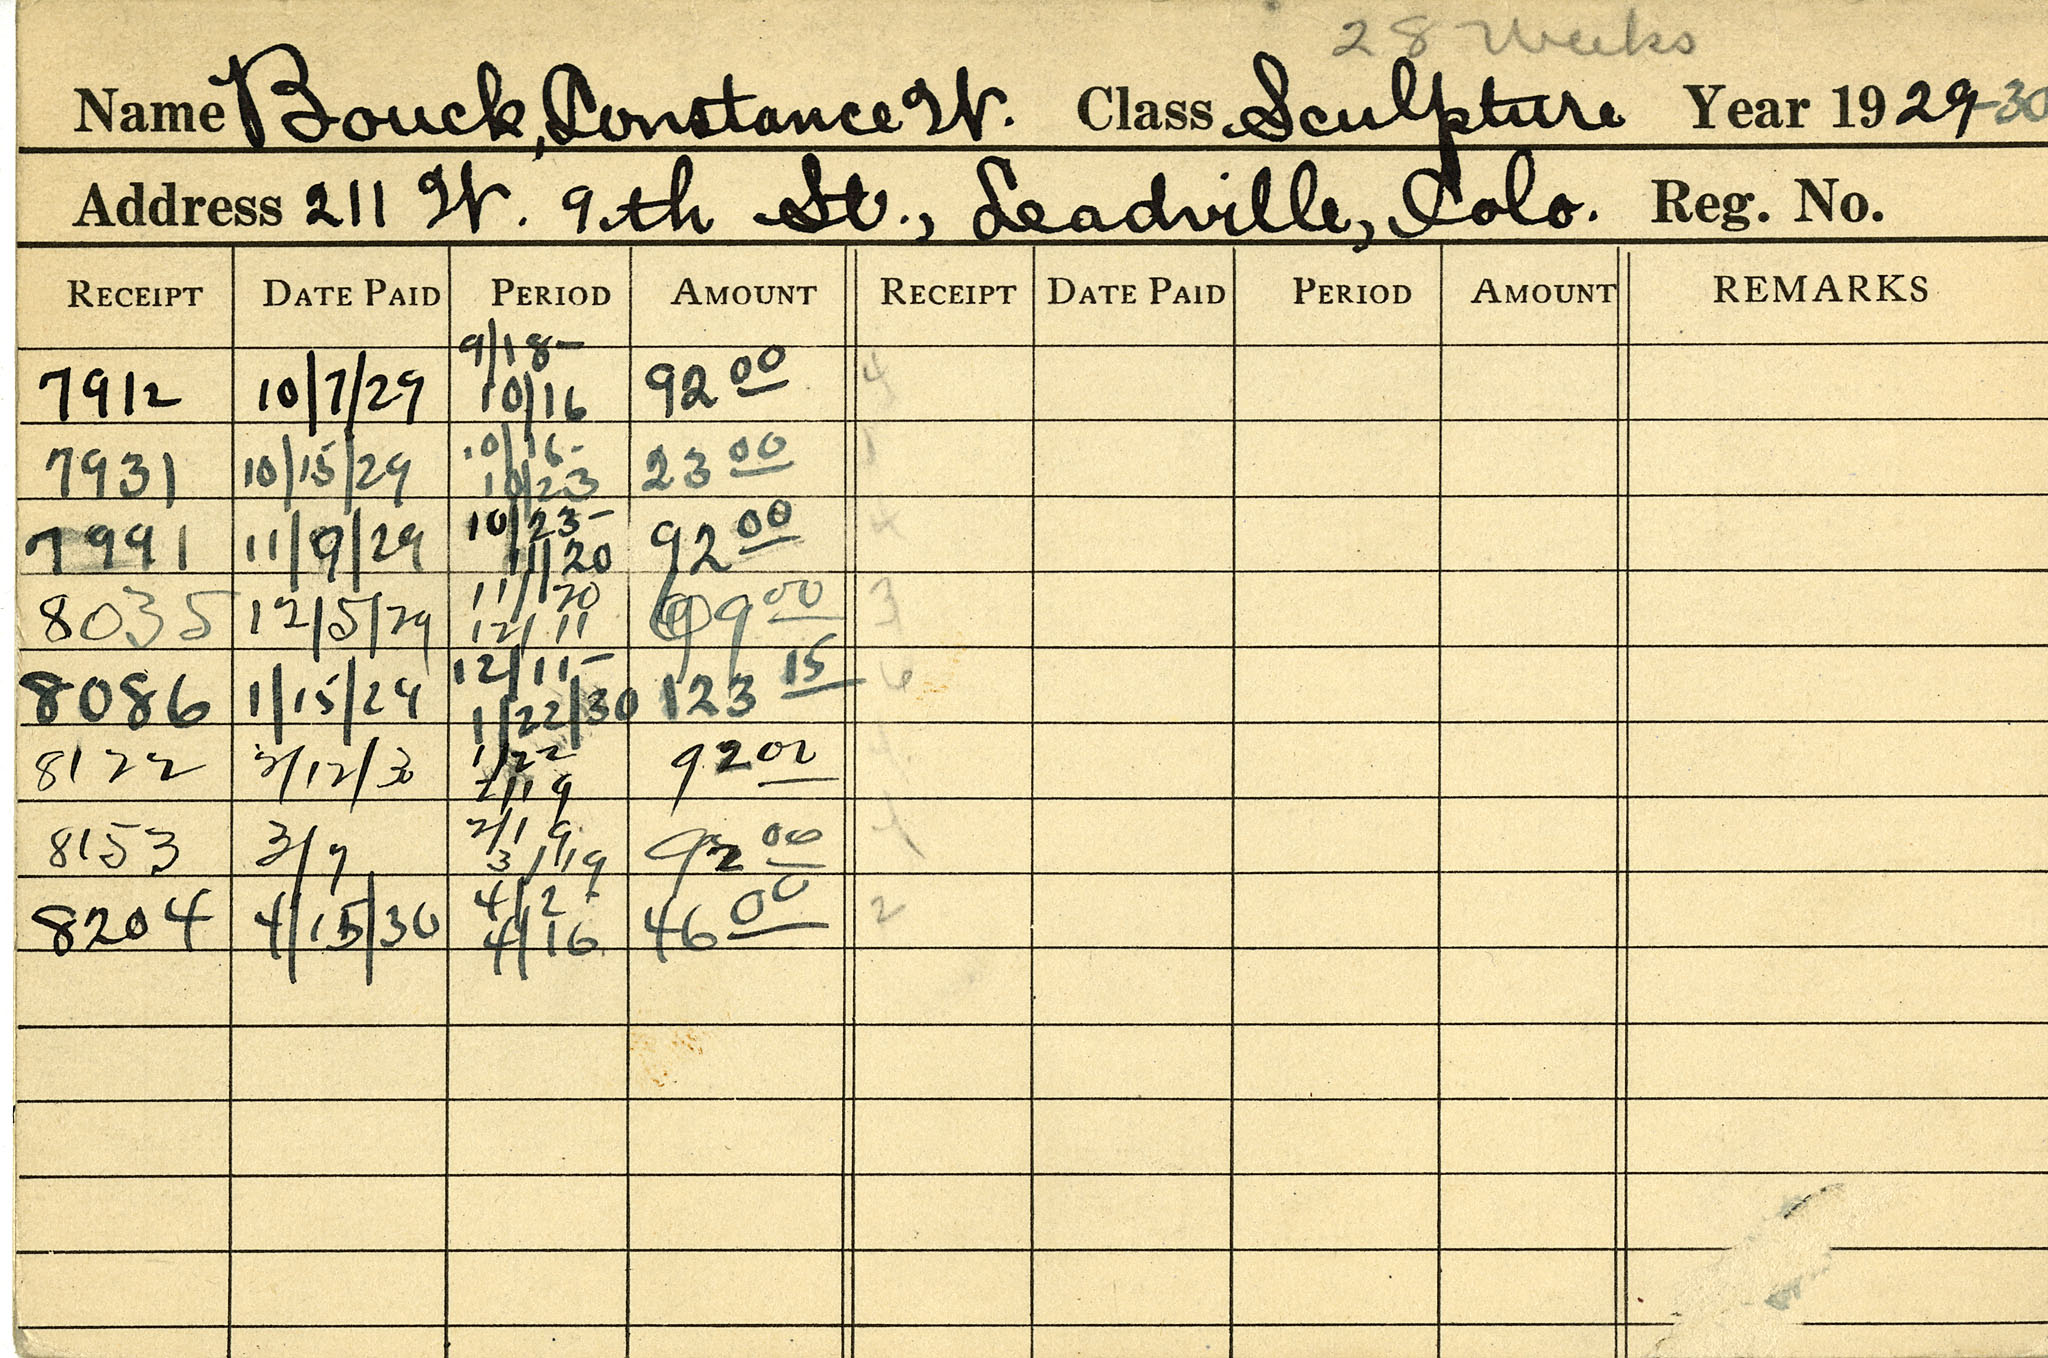 28 Weeks
Name Bouck, Constance W. Class Sculpture Year 1929-30
Address 211 W. 9th St., Leadville, Colo. Reg. No.
RECEIPT DATE PAID PERIOD AMOUNT RECEIPT DATE PAID PERIOD AMOUNT REMARKS
9/18-
7912 10/7/29 10/16 92 00 4
10/16-
7931 10/15/29 10/23 23 00 1
10/23-
7991 11/9/29 11/20 92 00 4
11/20
8035 12/5/29 12/11 69 00 3
12/11-
8086 1/15/29 1/22/30 123 15 6
1/22
8122 2/12/30 2/19 92 00 4
2/19
8153 3/9 3/19 92 00 4
4/2-
8204 4/15/30 4/16 46 00 2